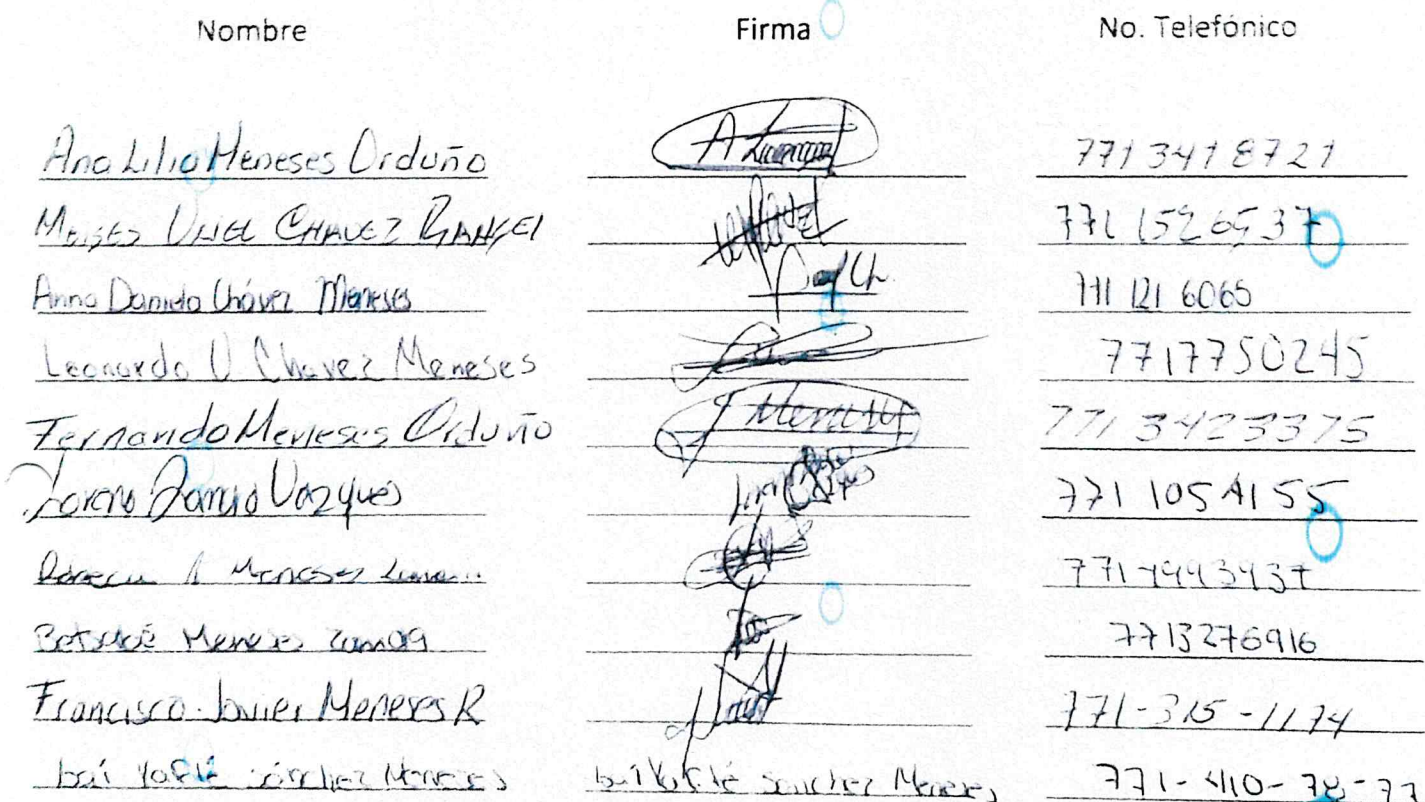 Nombre Firma No. Telefónico
Ana Lilia Meneses Orduño 771 341 8721
Moises Uriel Chavez Rangel 771 152 6537
Anna Daniela Chávez Meneses 771 121 6065
Leonardo U. Chavez Meneses 7717750245
Fernando Meneses Orduño J Meneses 771 3423375
Lorena Zamora Vazques 771 105 4155
Meneses 771
Betsabé Meneses Zamora 7713276916
Francisco Javier Meneses R 771-315-1174
Sánchez Meneses Sánchez Meneses 771-410-78-77